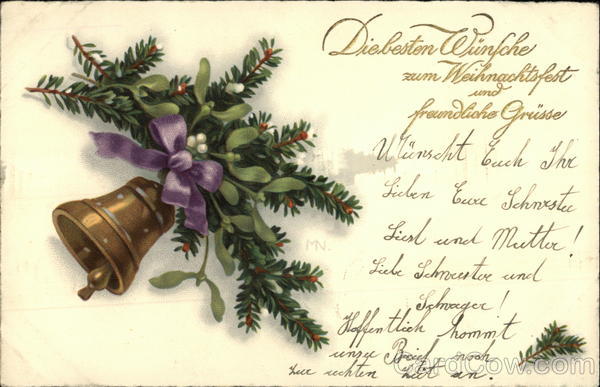 Die besten Wünsche
zum Weihnachtsfest
und
freundliche Grüsse
Wünscht Euch Ihr
Lieben Eure Schwester
Liesl und Mutter!
Liebe Schwester und
Schwager!
Hoffentlich kommt
unser Brief noch
zur rechten Zeit an.
MN.
CardCow.com